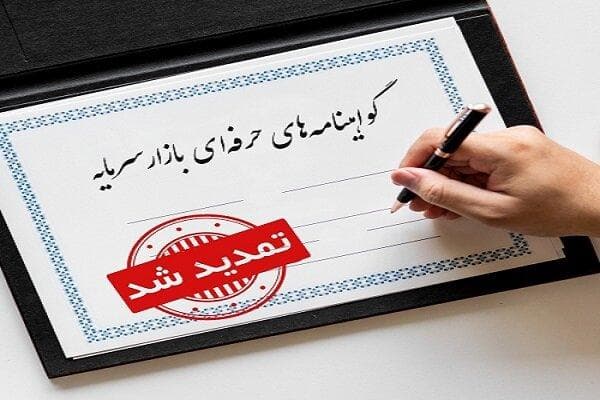 گواهینامه‌های حرفه‌ای بازار سرمایه
تمدید شد